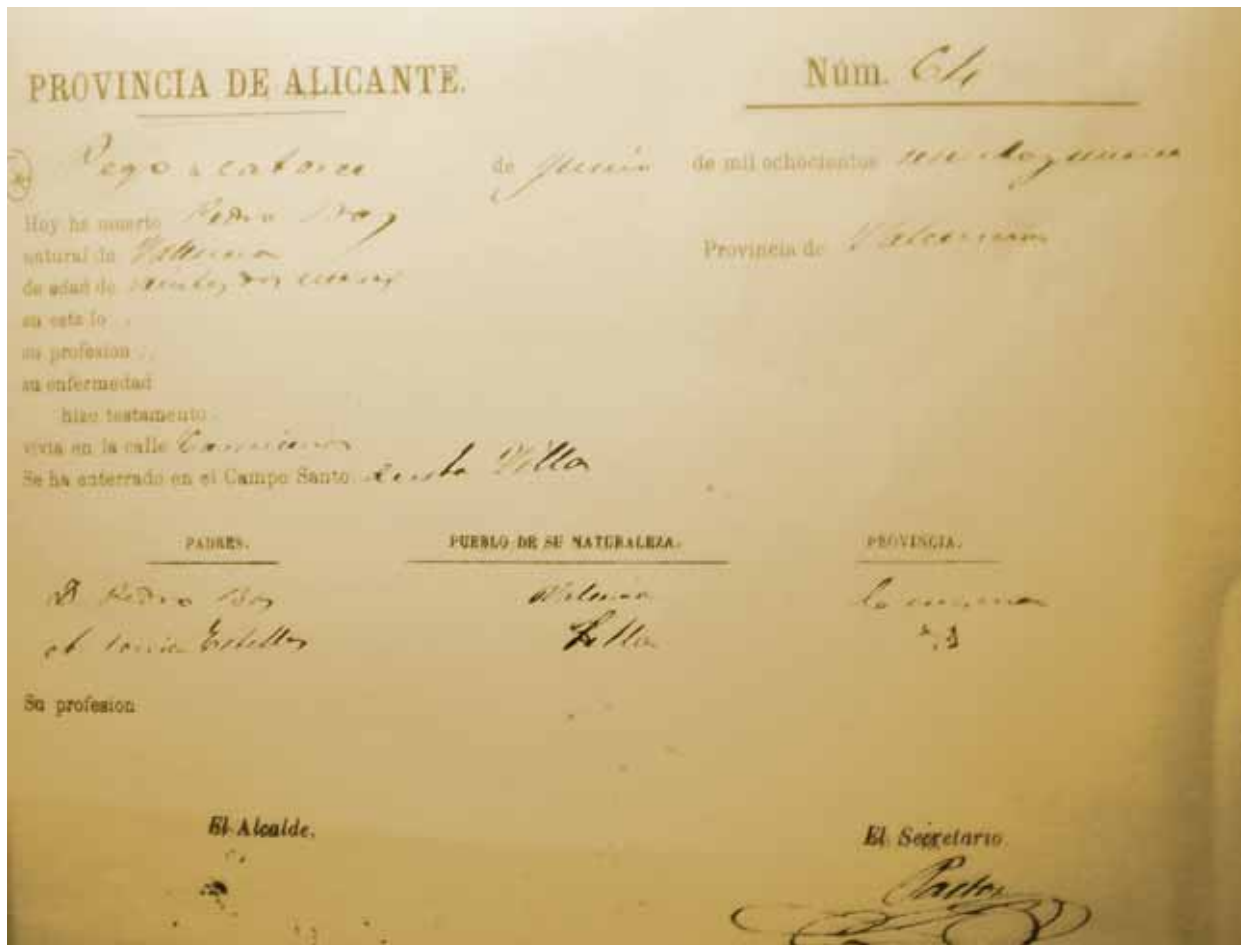 PROVINCIA DE ALICANTE.
Núm. 64
Pego a catorce de Junio de mil ochocientos
Hoy ha muerto Pedro Boy
natural de Valencia Provincia de Valencia
de edad de meses
su estado
su profesion
su enfermedad
hizo testamento
vivia en la calle
Se ha enterrado en el Campo Santo de esta Villa
PADRES. PUEBLO DE SU NATURALEZA. PROVINCIA.
D. Pedro Boy Valencia la misma
Antonia Estelles Id.
Su profesion
El Alcalde.
El Secretario
Pastor